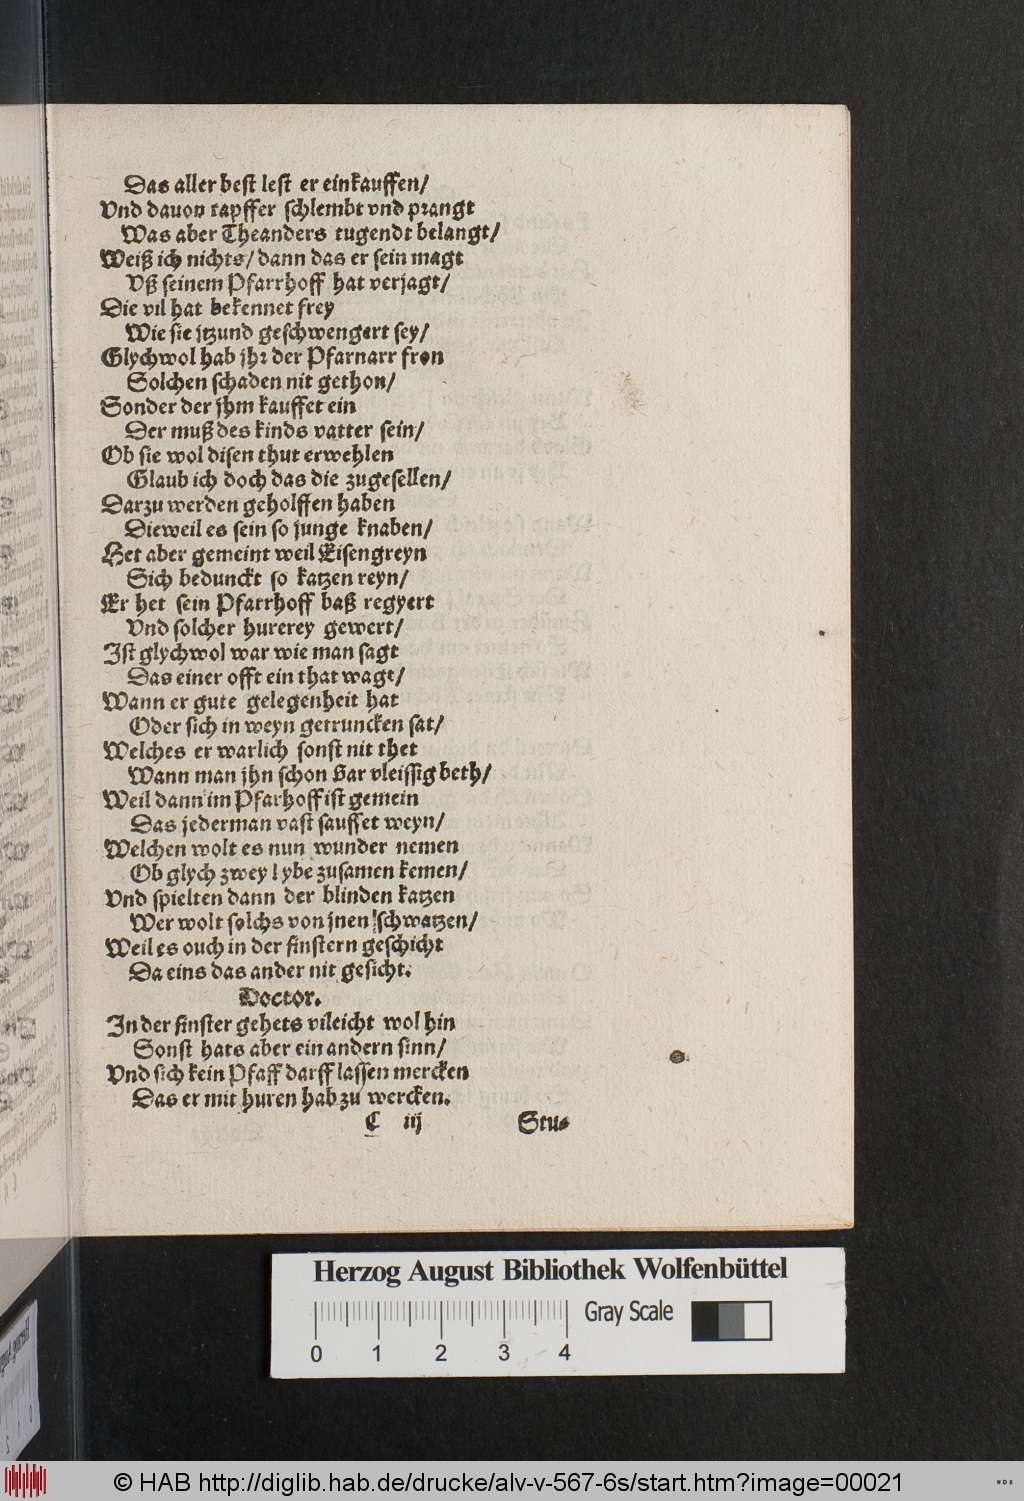 Das aller best lest er einkauffen/
Vnd dauon tapffer schlembt vnd prangt
Was aber Theanders tugendt belangt/
Weiß ich nichts/ dann das er sein magt
Vß seinem Pfarrhoff hat verjagt/
Die vil hat bekennet frey
Wie sie jtzund geschwengert sey/
Glychwol hab jhr der Pfarnarr fron
Solchen schaden nit gethon/
Sonder der jhm kauffet ein
Der muß des kinds vatter sein/
Ob sie wol disen thut erwehlen
Glaub ich doch das die zugesellen/
Darzu werden geholffen haben
Dieweil es sein so junge knaben/
Het aber gemeint weil Eisengreyn
Sich bedunckt so katzen reyn/
Er het sein Pfarrhoff baß regyert
Vnd solcher hurerey gewert/
Ist glychwol war wie man sagt
Das einer offt ein that wagt/
Wann er gute gelegenheit hat
Oder sich in weyn getruncken sat/
Welches er warlich sonst nit thet
Wann man jhn schon gar vleissig beth/
Weil dann im Pfarhoff ist gemein
Das jederman vast sauffet weyn/
Welchen wolt es nun wunder nemen
Ob glych zwey lybe zusamen kemen/
Vnd spielten dann der blinden katzen
Wer wolt solchs von jnen schwatzen/
Weil es ouch in der finstern geschicht
Da eins das ander nit gesicht.
Doctor.
In der finster gehets vileicht wol hin
Sonst hats aber ein andern sinn/
Vnd sich kein Pfaff darff lassen mercken
Das er mit huren hab zu wercken.
C iij Stu-
Herzog August Bibliothek Wolfenbüttel
Gray Scale
0 1 2 3 4
© HAB http://diglib.hab.de/drucke/alv-v-567-6s/start.htm?image=00021